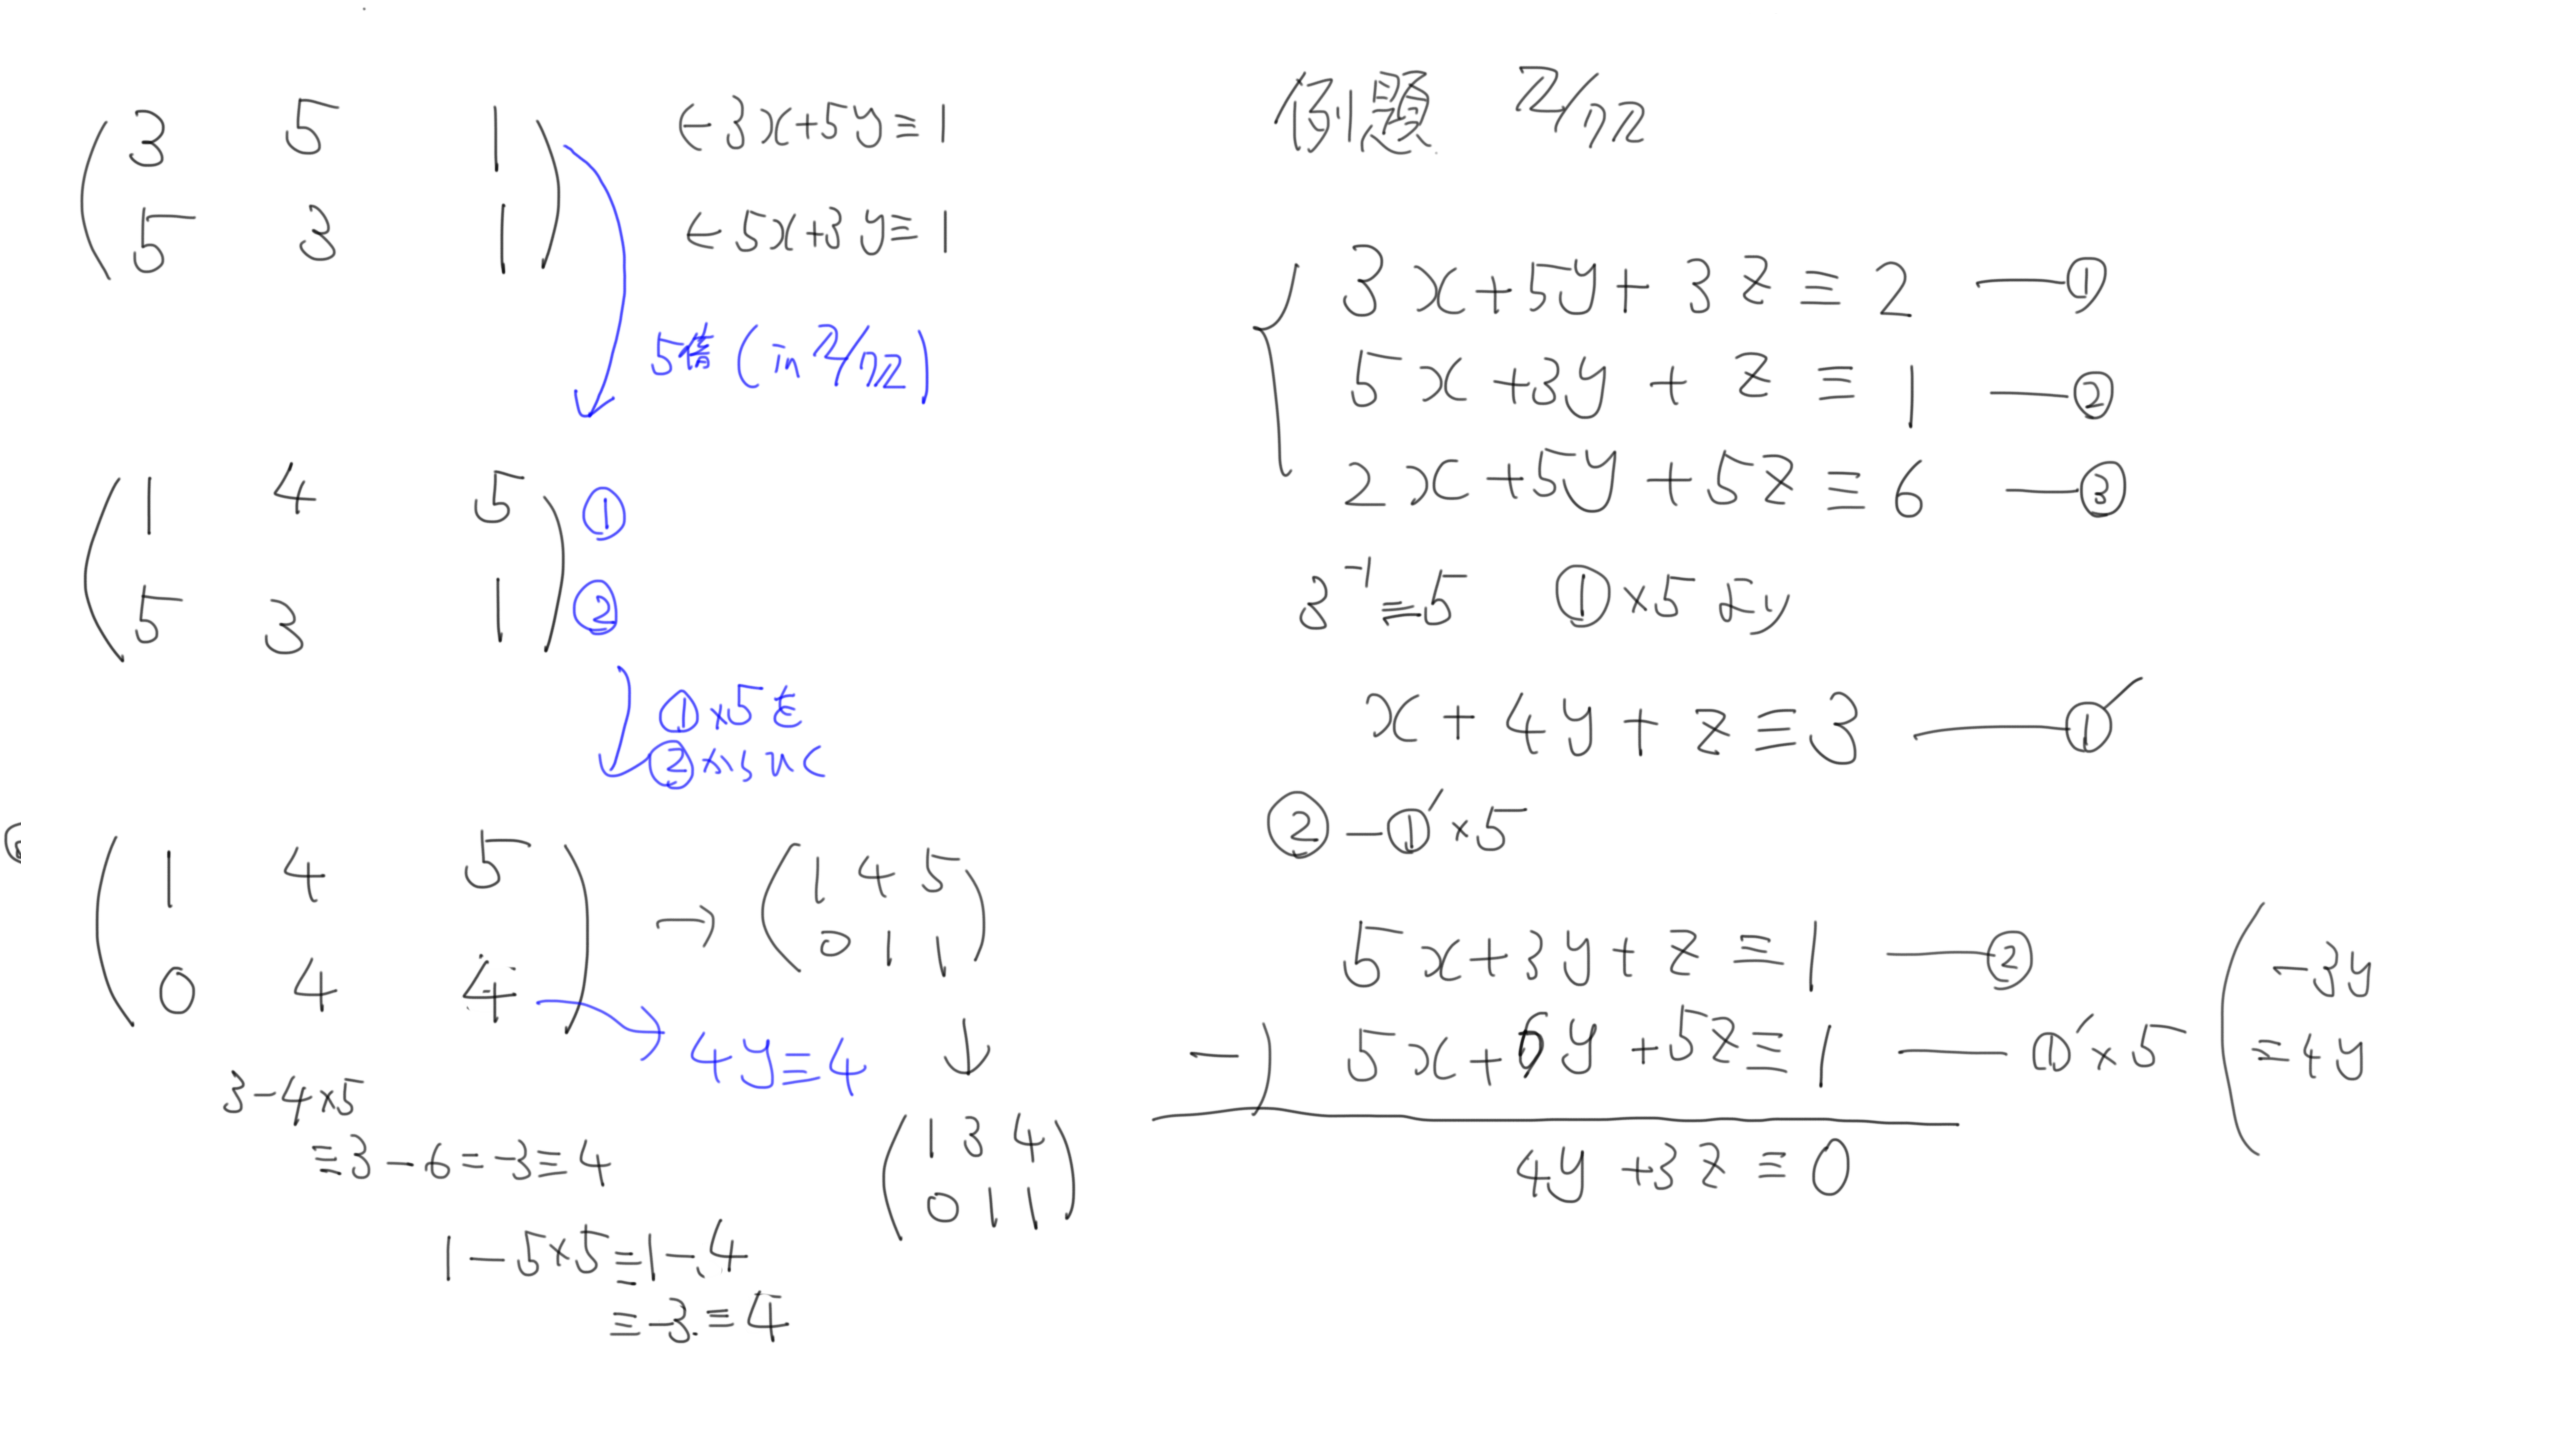 (3 5 1) ← 3x+5y≡1
(5 3 1) ← 5x+3y≡1
5倍 (in ℤ/7ℤ)
(1 4 5) ①
(5 3 1) ②
①×5を
②から
(1 4 5)
(0 4 4)
→ (1 4 5)
(0 1 1)
→ 4y≡4
↓
3-4×5
≡3-6=-3≡4
(1 3 4)
(0 1 1)
1-5×5≡1-4
≡-3≡4
例題 ℤ/7ℤ
3x+5y+3z≡2 —①
5x+3y+z≡1 —②
2x+5y+5z≡6 —③
3⁻¹≡5 ①×5より
x+4y+z≡3 —①′
②-①′×5
5x+3y+z≡1 —②
-) 5x+6y+5z≡1 —①′×5
4y+3z≡0
(-3y
=4y